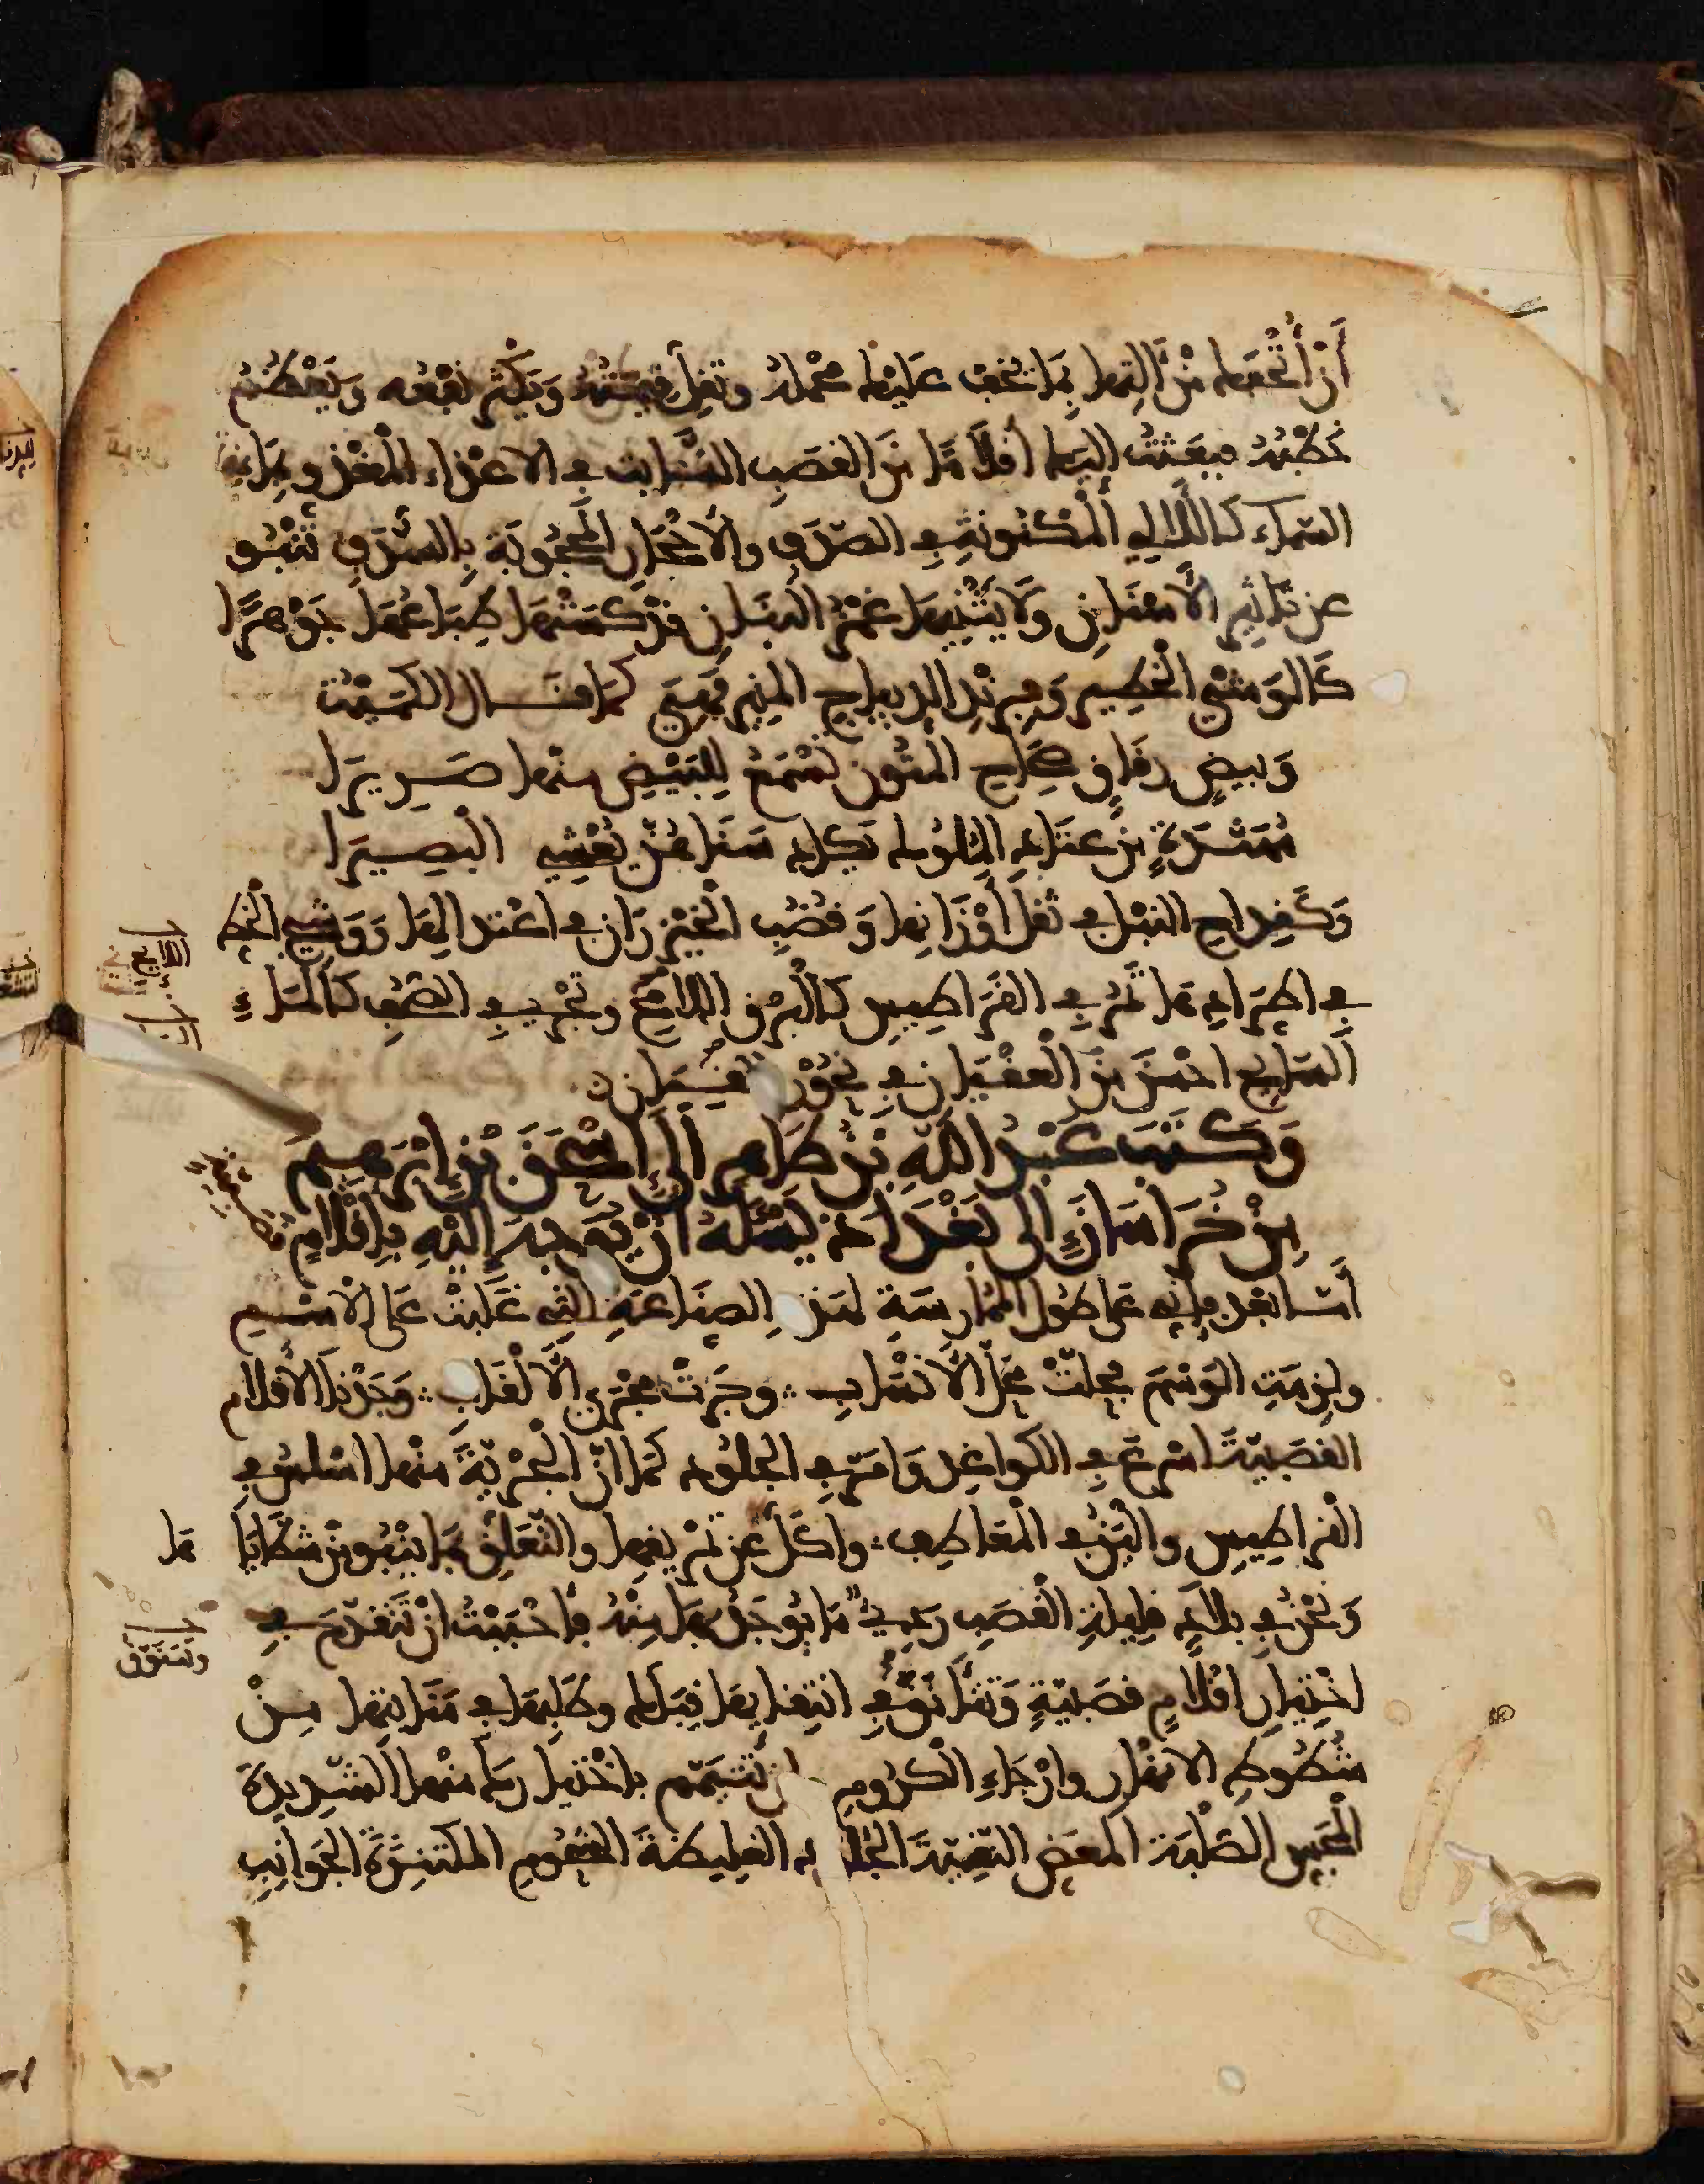 أَنْ أُتْحِفَكَ مِنْ آلَتِهَا بِمَا يَخِفُّ عَلَيْكَ مَحْمَلُهُ وتَقِلُّ قِيمَتُهُ وَيَكْثُرُ نَفْعُه وَيَعْظُمُ
خَطْبُهُ فبعَثْتُ إليك أَقْلَامًا مِنَ القَصَبِ النَّابت في الاعْذاء المَغْذو بِمَاءِ
السّماء كاللَّالي المَكْنونةِ في الصّدَفِ والأَحْجَارِ المحْجُوبَةِ بالسّدَفِ تَنْبُو
عن تَاثِيرِ الأَسْنَانِ وَلَا يَثْنِيهَا غَمْزُ البَنَانِ قَدْ كَسَتْهَا طِبَاعُهَا جَوْهَرًا
كَالوَشْيِ الخَطِير وَفِرِنْدِ الديباج المنير فَهِيَ كَمَا قَال الكُمَيْت
وَبيضٍ رِقَاقٍ صِحَاحِ المُتُونِ تَسْمَعُ لِلبَيْضِ منْها صَرِيرَا
مُهَنَّدَةٍ مِنْ عَتَادِ المُلُوك يَكادُ سَنَاهُنَّ يُعْشِي البَصِيرَا
وَكَقِداحِ النَّبْلِ في ثِقَلِ أَوْزَانِها وَقُضُبِ الخَيْزرَانِ في اعْتدالِهَا وَوَشْيِ الخَط
في اطِّرَادِهَا تَمُرُّ في القَرَاطِيسِ كَالْبَرْقِ اللامِحِ وتَجْرِي في الصُّحُفِ كالمَاءِ
السَايح احْسَنَ مِنَ العِقْيَانِ في نُحُورِ القِيَانِ
وَكَتَبَ عَبْدُ اللَّهِ بْنُ طَاهِرٍ إِلَى إِسْحَقَ بْنِ إِبْرَهِيمَ
مِنْ خُرَاسَانَ إِلى بَغْدَادَ يَسْئَلُهُ أَنْ يُوَجِّهَ إِلَيْهِ بِأَقْلَامٍ
أَمّا بَعْدُ فإِنّه عَلى طُولِ المُمَارَسَةِ لهَذِهِ الصِنَاعَةِ الَّتِي غَلَبَتْ عَلَى الاسْمِ
ولزِمَتِ الوَسْمَ فحلّتْ مَحَلَّ الأَنْسَابِ وجَرَتْ مَجْرَى الأَلْقَابِ وَجَدْنَا الأَقْلام
القَصَبِيّةَ اسْرَعَ في الكواغِدِ وَامَرَّ في الجُلُودِ كَمَا انّ البَحْرِيّةَ منْهَا اسْلَسُ في
القراطِيسِ والْيَنُ في المَعَاطِفِ واكَلُّ عن تَمْزيقِهَا والتّعَلُّقِ بِمَا يَنْبُو مِنْ شَظَايَاهَا
وَنَحْنُ في بلادٍ قليلةِ القَصَبِ رَدِيٍّ مَا يُوجَدُ بِهَا مِنْهُ فَاحْبَبْتُ انْ تَتَقَدّمَ في
اخْتِيارِ اقْلَامٍ قصَبِيّةٍ وَتَتَأَنَّقَ في انْتِقَائِهَا قِبَلَكَ وطَلَبِهَا في مَنَابِتِهَا مِنْ
شُطُوطِ الانْهَارِ وارْجَاءِ الكُرُومِ وان تَتَيَمّم باخْتيارِكَ منْهَا الشَّدِيدَةَ
المَجَسِّ الصُّلْبَةَ المَعَضِّ النّقِيّةَ الجُلُودِ الغَلِيظَةَ الشّحُومِ المُكْتَنِزَةَ الجَوَانِبِ
وتَتَنَوّقَ